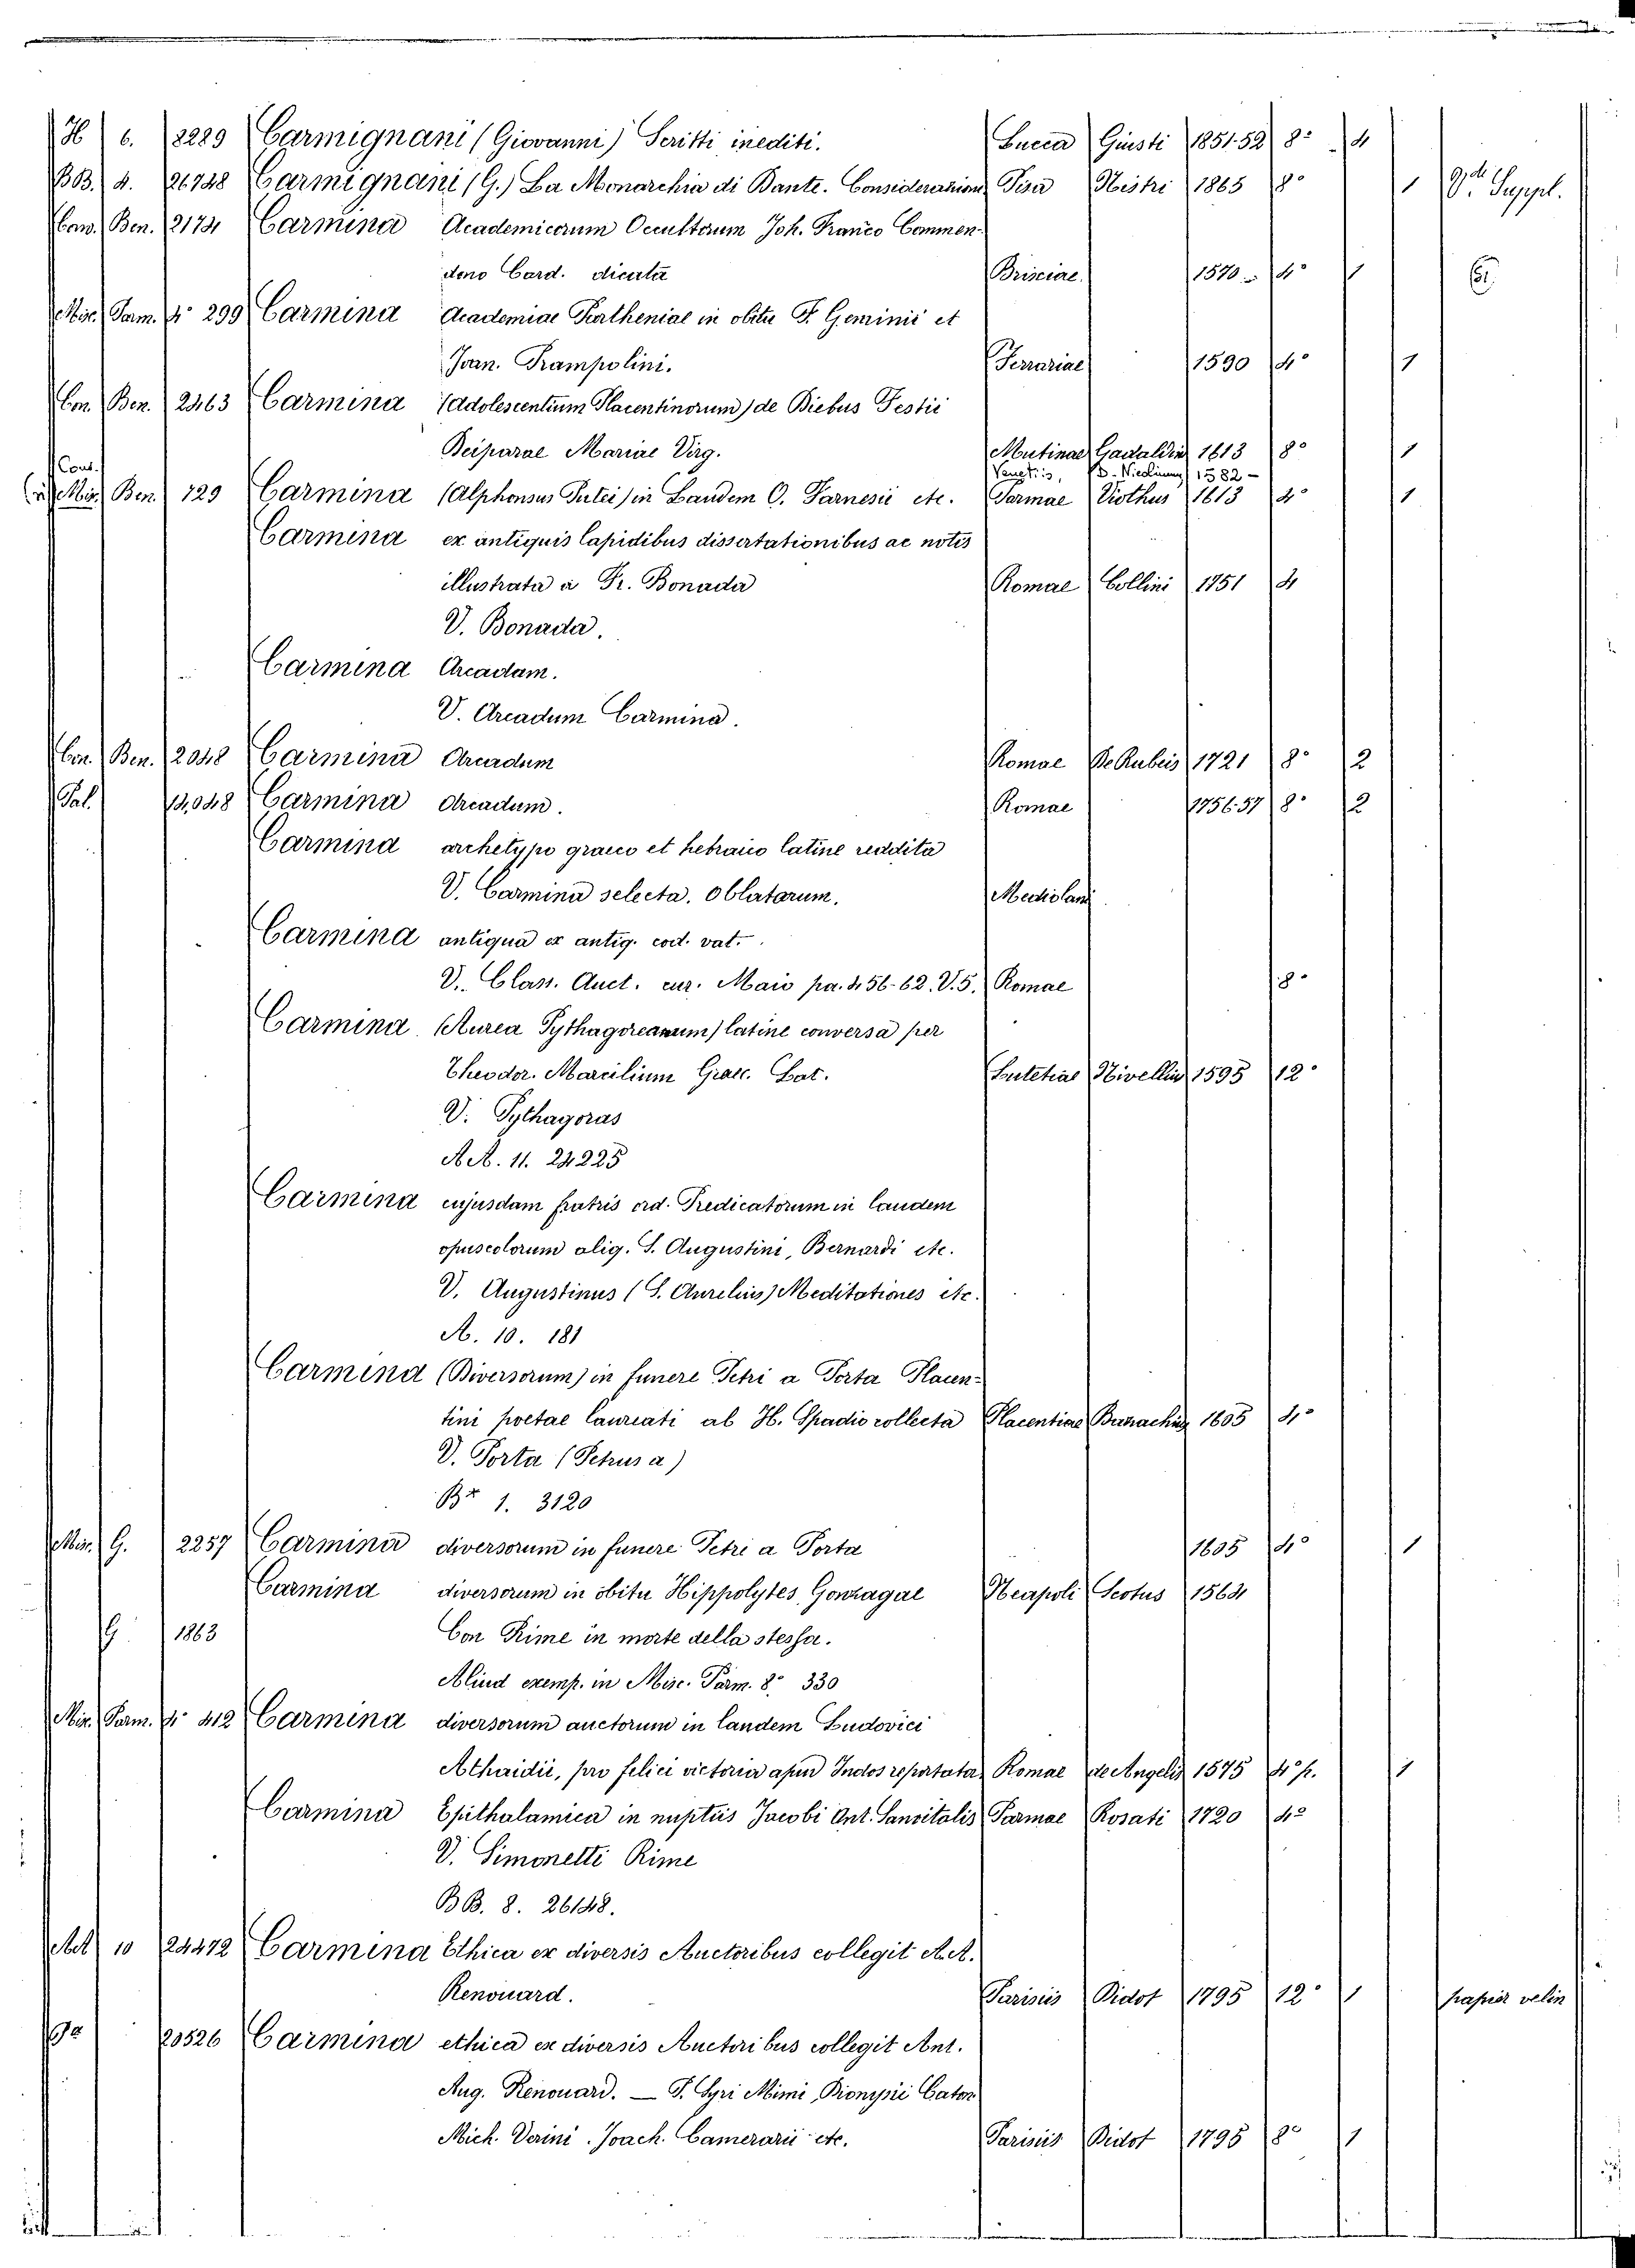 H 6. 8289 Carmignani (Giovanni) Scritti inediti. Lucca Giusti 1851-52 8° 4
BB. 4. 26748 Carmignani (G.) La Monarchia di Dante. Considerazioni Pisa Nistri 1865 8° 1 Suppl.
Conv. Ben. 2174 Carmina Academicorum Occultorum Joh. Franco Commen-
deno Card. dicata Brisciae 1570 4° 1
Misc. Parm. 4° 299 Carmina Academiae Partheniae in obitu F. Geminii et
Joan. Trampolini. Ferrariae 1590 4° 1
Con. Ben. 2463 Carmina (Adolescentium Placentinorum) de Diebus Festis
Deiparae Mariae Virg. Mutinae Gadaldin 1613 8° 1
Cons. Venetiis, D. Nicolinum 1582 -
Misc. Ben. 129 Carmina (Alphonsus Putei) in Laudem O. Farnesii etc. Parmae Viothus 1613 4° 1
Carmina ex antiquis lapidibus dissertationibus ac notis
illustrata a Fr. Bonada Romae Collini 1751 4
V. Bonada.
Carmina Arcadam.
V. Arcadum Carmina.
Con. Ben. 2048 Carmina Arcadum Romae De Rubeis 1721 8° 2
Pal. 13,048 Carmina Arcadum. Romae 1756-57 8° 2
Carmina archetypo graeco et hebraico latine reddita
V. Carmina selecta. oblatorum. Mediolani
Carmina antiqua ex antiq. cod. vat.
V. Class. Auct. cur. Maio pa. 456-62. V. 5. Romae 8°
Carmina (Aurea Pythagoreanum) latine conversa per
Theodor. Marcilium Graec. Lat. Lutetiae Nivellius 1595 12°
V. Pythagoras
AA. 11. 24225
Carmina cujusdam fratris ord. Predicatorum in laudem
opuscolorum alig. S. Augustini, Bernardi etc.
V. Augustinus (S. Aurelius) Meditationes etc.
A. 10. 181
Carmina (Diversorum) in funere Petri a Porta Placen-
tini poetae laureati ab H. Spadio collecta Placentiae 1605 4°
V. Porta (Petrus a)
1. 3120
Misc. G. 2257 Carmina diversorum in funere Petri a Porta 1605 4° 1
Carmina diversorum in obitu Hippolytes Gonzagae Neapoli Scotus 1564
G. 1863 Con Rime in morte della stessa.
Aliud exemp. in Misc. Parm. 8° 330
Misc. Parm. 4° 412 Carmina diversorum auctorum in laudem Ludovici
Athaidii, pro felici victoria apud Indos reportata Romae de Angelis 1575 4° p. 1
Carmina Epithalamica in nuptiis Jacobi Ant. Sanvitalis Parmae Rosati 1720 4°
V. Simonetti Rime
BB. 8. 26148.
10 24472 Carmina Ethica ex diversis Auctoribus collegit A. A.
Renouard. Parisiis Didot 1795 12° 1 papier velin
20526 Carmina ethica ex diversis Auctoribus collegit Ant.
Aug. Renouard. — P. Syri Mimi, Dionysii Cator
Mich. Verini. Joach. Camerarii etc. Parisiis Didot 1795 8° 1